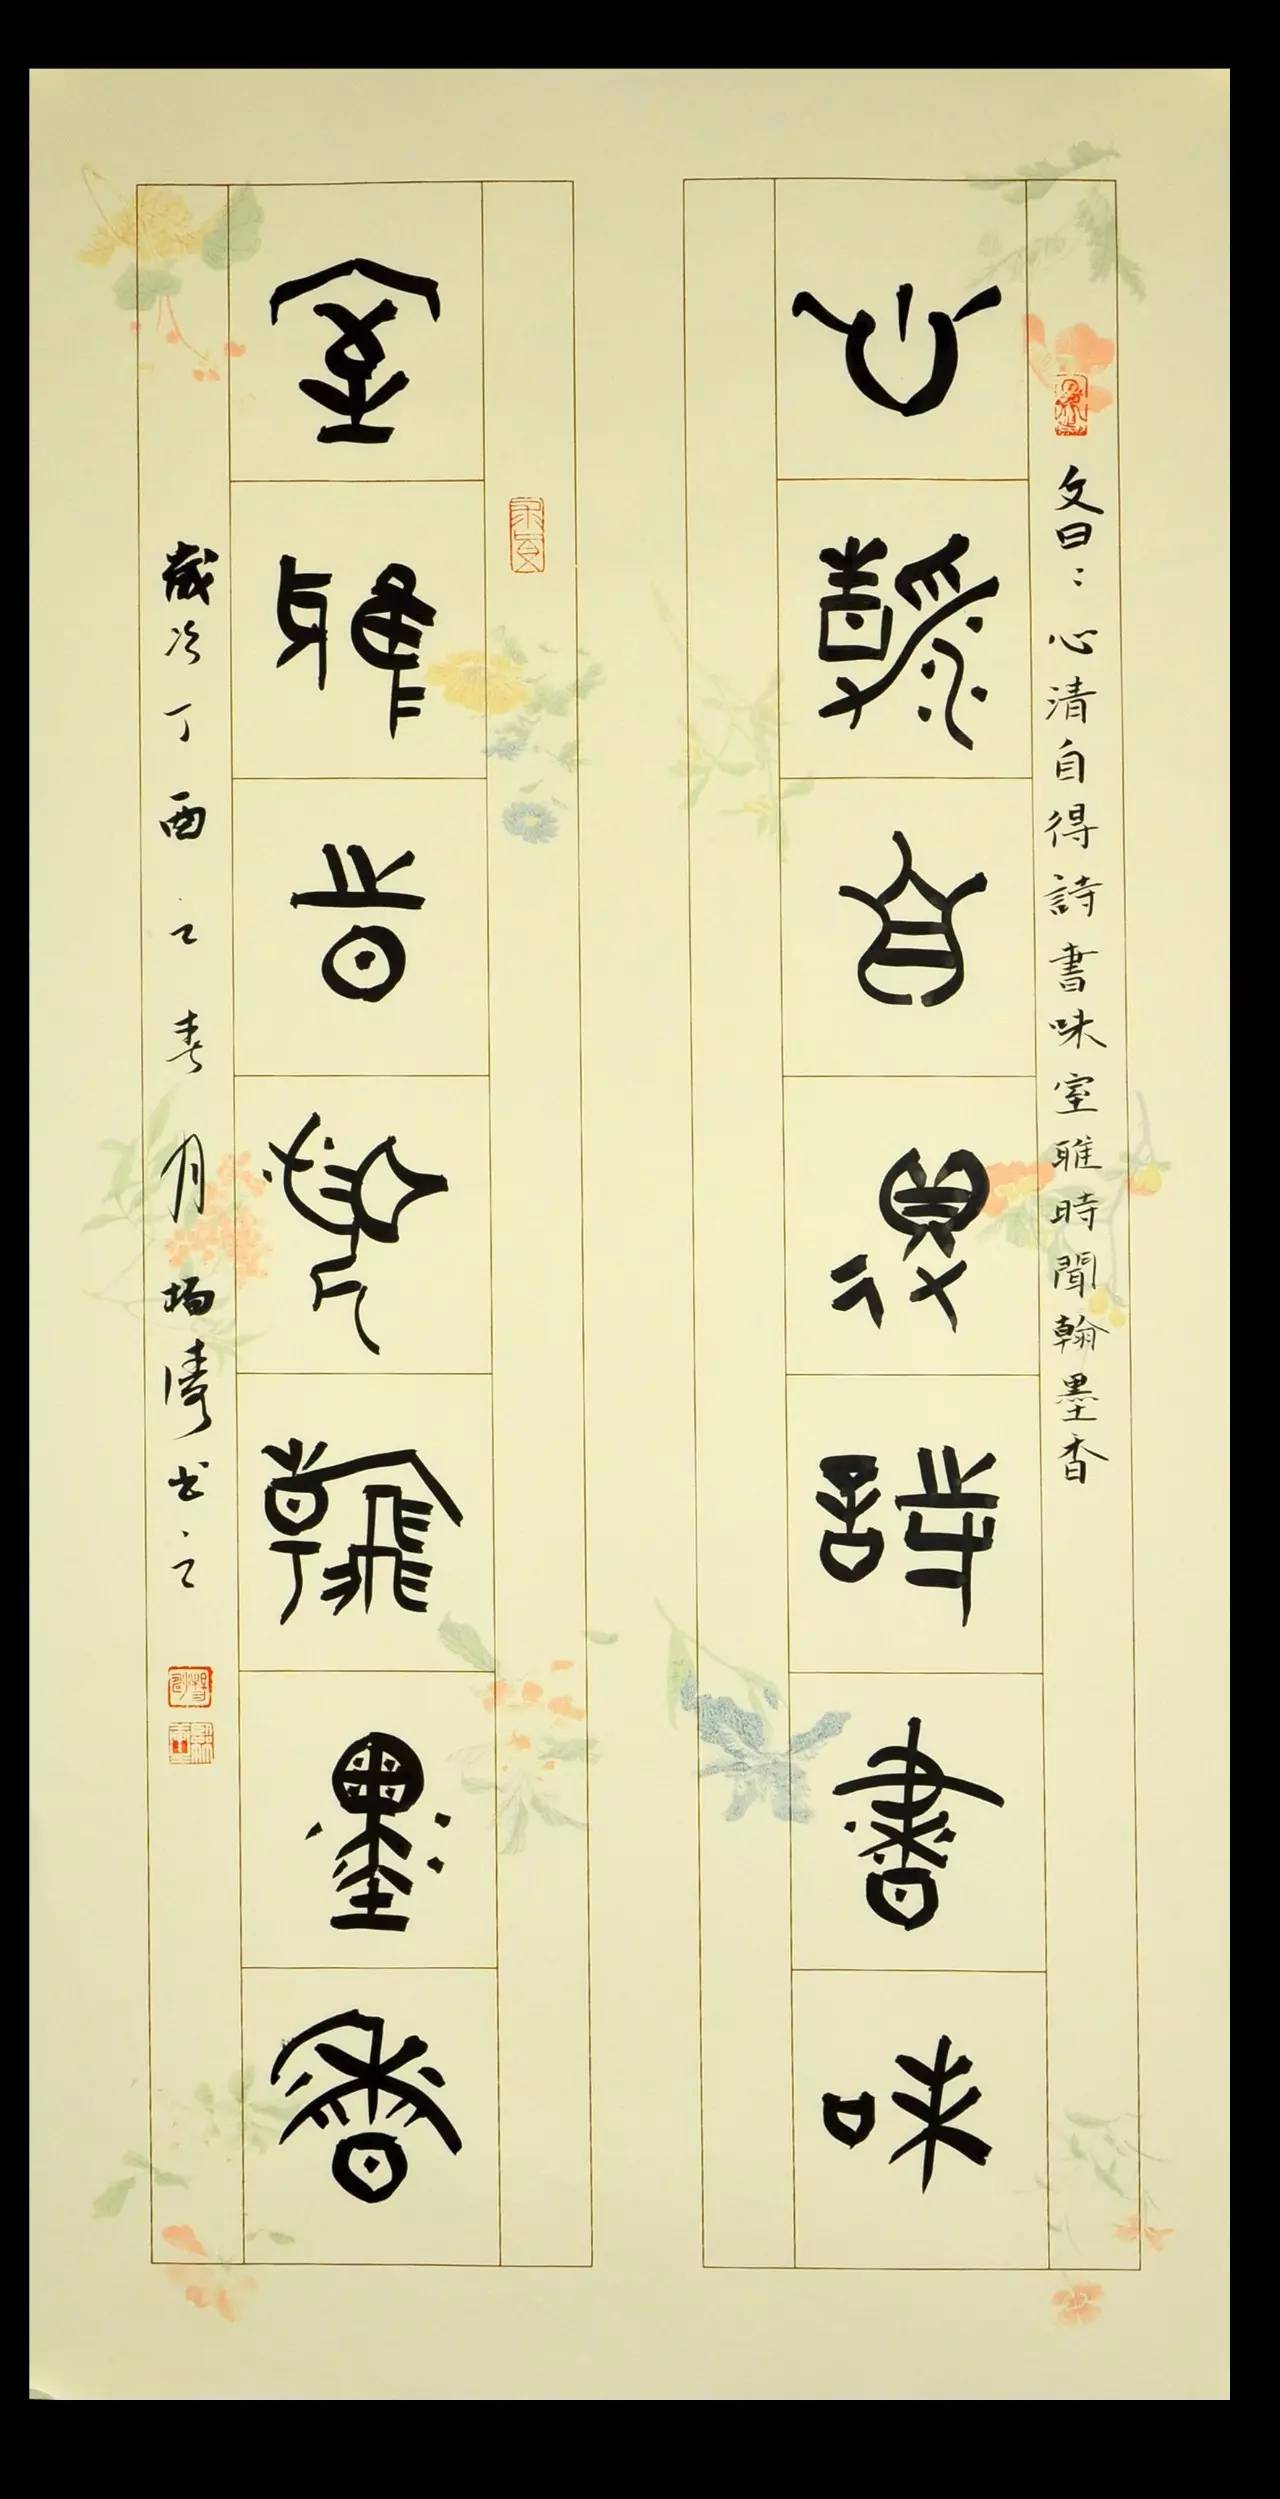 文曰：心清自得詩書味室雅時聞翰墨香
心清自得詩書味
室雅時聞翰墨香
歲次丁酉之春月楊濤书之